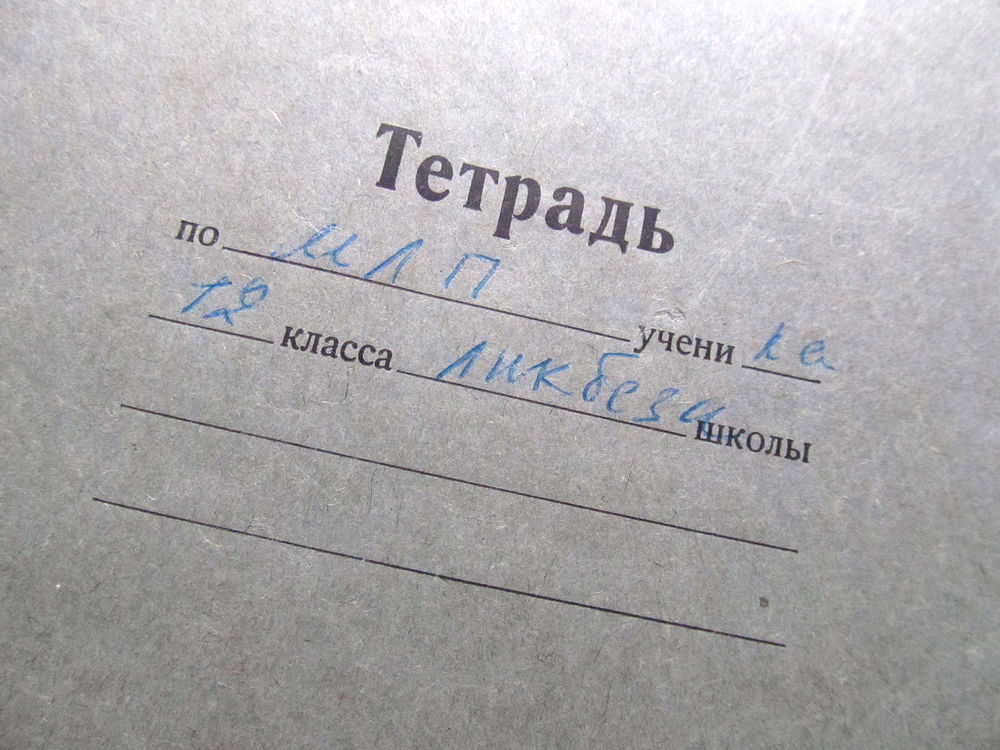 Тетрадь
по МЛП учени ка
12 класса ликбезы школы